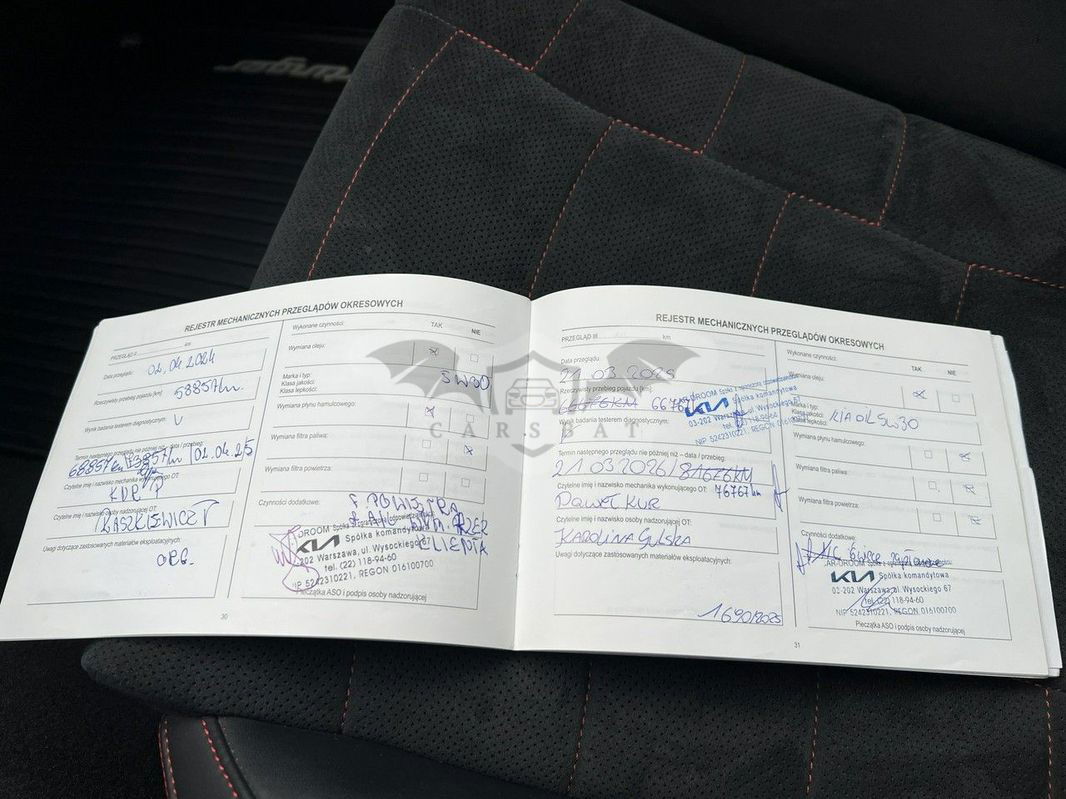 REJESTR MECHANICZNYCH PRZEGLĄDÓW OKRESOWYCH
PRZEGLĄD
km
Data przeglądu:
02.04.2024
Rzeczywisty przebieg pojazdu [km]:
58857km
Wynik badania testerem diagnostycznym:
V
Termin następnego przeglądu nie później niż – data / przebieg:
02.04.25
Czytelne imię i nazwisko mechanika wykonującego OT:
Czytelne imię i nazwisko osoby nadzorującej OT:
KASZKIEWICZ P
Uwagi dotyczące zastosowanych materiałów eksploatacyjnych:
ORG.
Wykonane czynności:
TAK
NIE
Wymiana oleju:
Marka i typ:
Klasa jakości:
Klasa lepkości:
5W30
Wymiana płynu hamulcowego:
Wymiana filtra paliwa:
Wymiana filtra powietrza:
Czynności dodatkowe:
KLIENTA
KIA
Spółka komandytowa
02-202 Warszawa, ul. Wysockiego 67
tel. (22) 118-94-60
NIP 5242310221, REGON 016100700
Pieczątka ASO i podpis osoby nadzorującej
30
REJESTR MECHANICZNYCH PRZEGLĄDÓW OKRESOWYCH
PRZEGLĄD III
km
Data przeglądu:
21.03.2025
Rzeczywisty przebieg pojazdu [km]:
Wynik badania testerem diagnostycznym:
KIA
Spółka komandytowa
03-202 Warszawa, ul. Wysockiego
NIP 5242310221, REGON
Termin następnego przeglądu nie później niż – data / przebieg:
21 03 2026/ 81676KM
Czytelne imię i nazwisko mechanika wykonującego OT:
76767km
PAWEŁ KUR
Czytelne imię i nazwisko osoby nadzorującej OT:
KAROLINA GULSKA
Uwagi dotyczące zastosowanych materiałów eksploatacyjnych:
1690/2025
Wykonane czynności:
TAK
NIE
Wymiana oleju:
Marka i typ:
Klasa jakości:
Klasa lepkości:
KIA OIL 5W30
Wymiana płynu hamulcowego:
Wymiana filtra paliwa:
Wymiana filtra powietrza:
Czynności dodatkowe:
świece zapłonowe
KIA
Spółka komandytowa
03-202 Warszawa, ul. Wysockiego 67
tel. (22) 118-94-60
NIP 5242310221, REGON 016100700
Pieczątka ASO i podpis osoby nadzorującej
31
CARSBAT